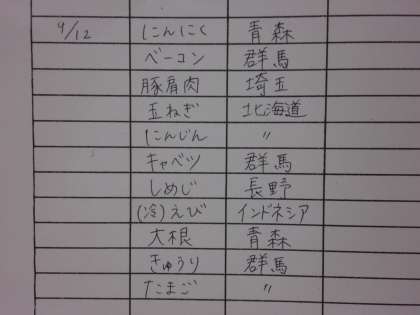 9/12 にんにく 青森
ベーコン 群馬
豚肩肉 埼玉
玉ねぎ 北海道
にんじん 〃
キャベツ 群馬
しめじ 長野
(冷)えび インドネシア
大根 青森
きゅうり 群馬
たまご 〃